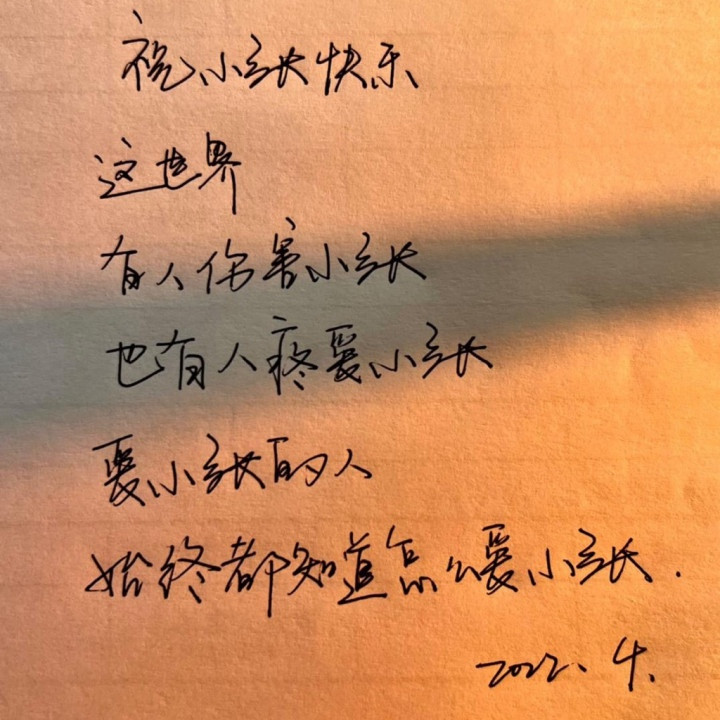 祝小张快乐
这世界
有人伤害小张
也有人疼爱小张
爱小张的人
始终都知道怎么爱小张.
2022.4.